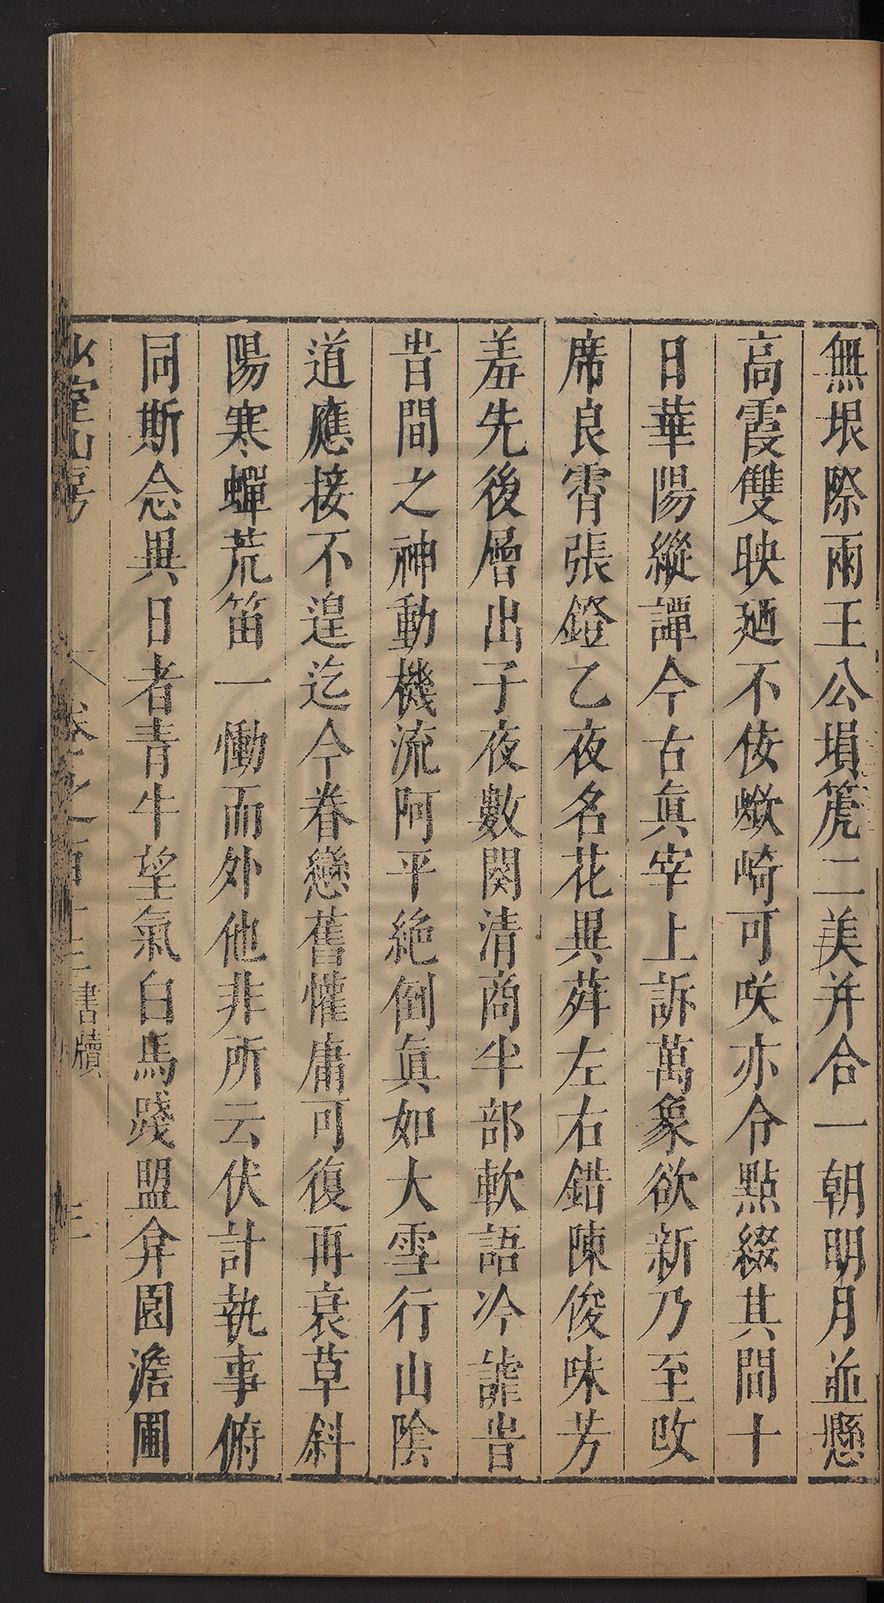 無垠際兩王公塤箎二美并合一朝明月並懸
高霞雙映廼不佞嶔崎可咲亦令點綴其間十
日華陽縱譚今古眞宰上訴萬象欲新乃至改
席良霄張鐙乙夜名花異葬左右錯陳俊味芳
羞先後層出子夜數闋清商半部軟語冷謔旹
旹間之神動機流阿平絶倒眞如大雪行山陰
道應接不遑迄今眷戀舊懽庸可復再衰草斜
陽寒蟬荒笛一慟而外他非所云伏計執事俯
同斯念異日者青牛望氣白馬踐盟弇園澹圃
少室山房 卷之百十三 書牘 三